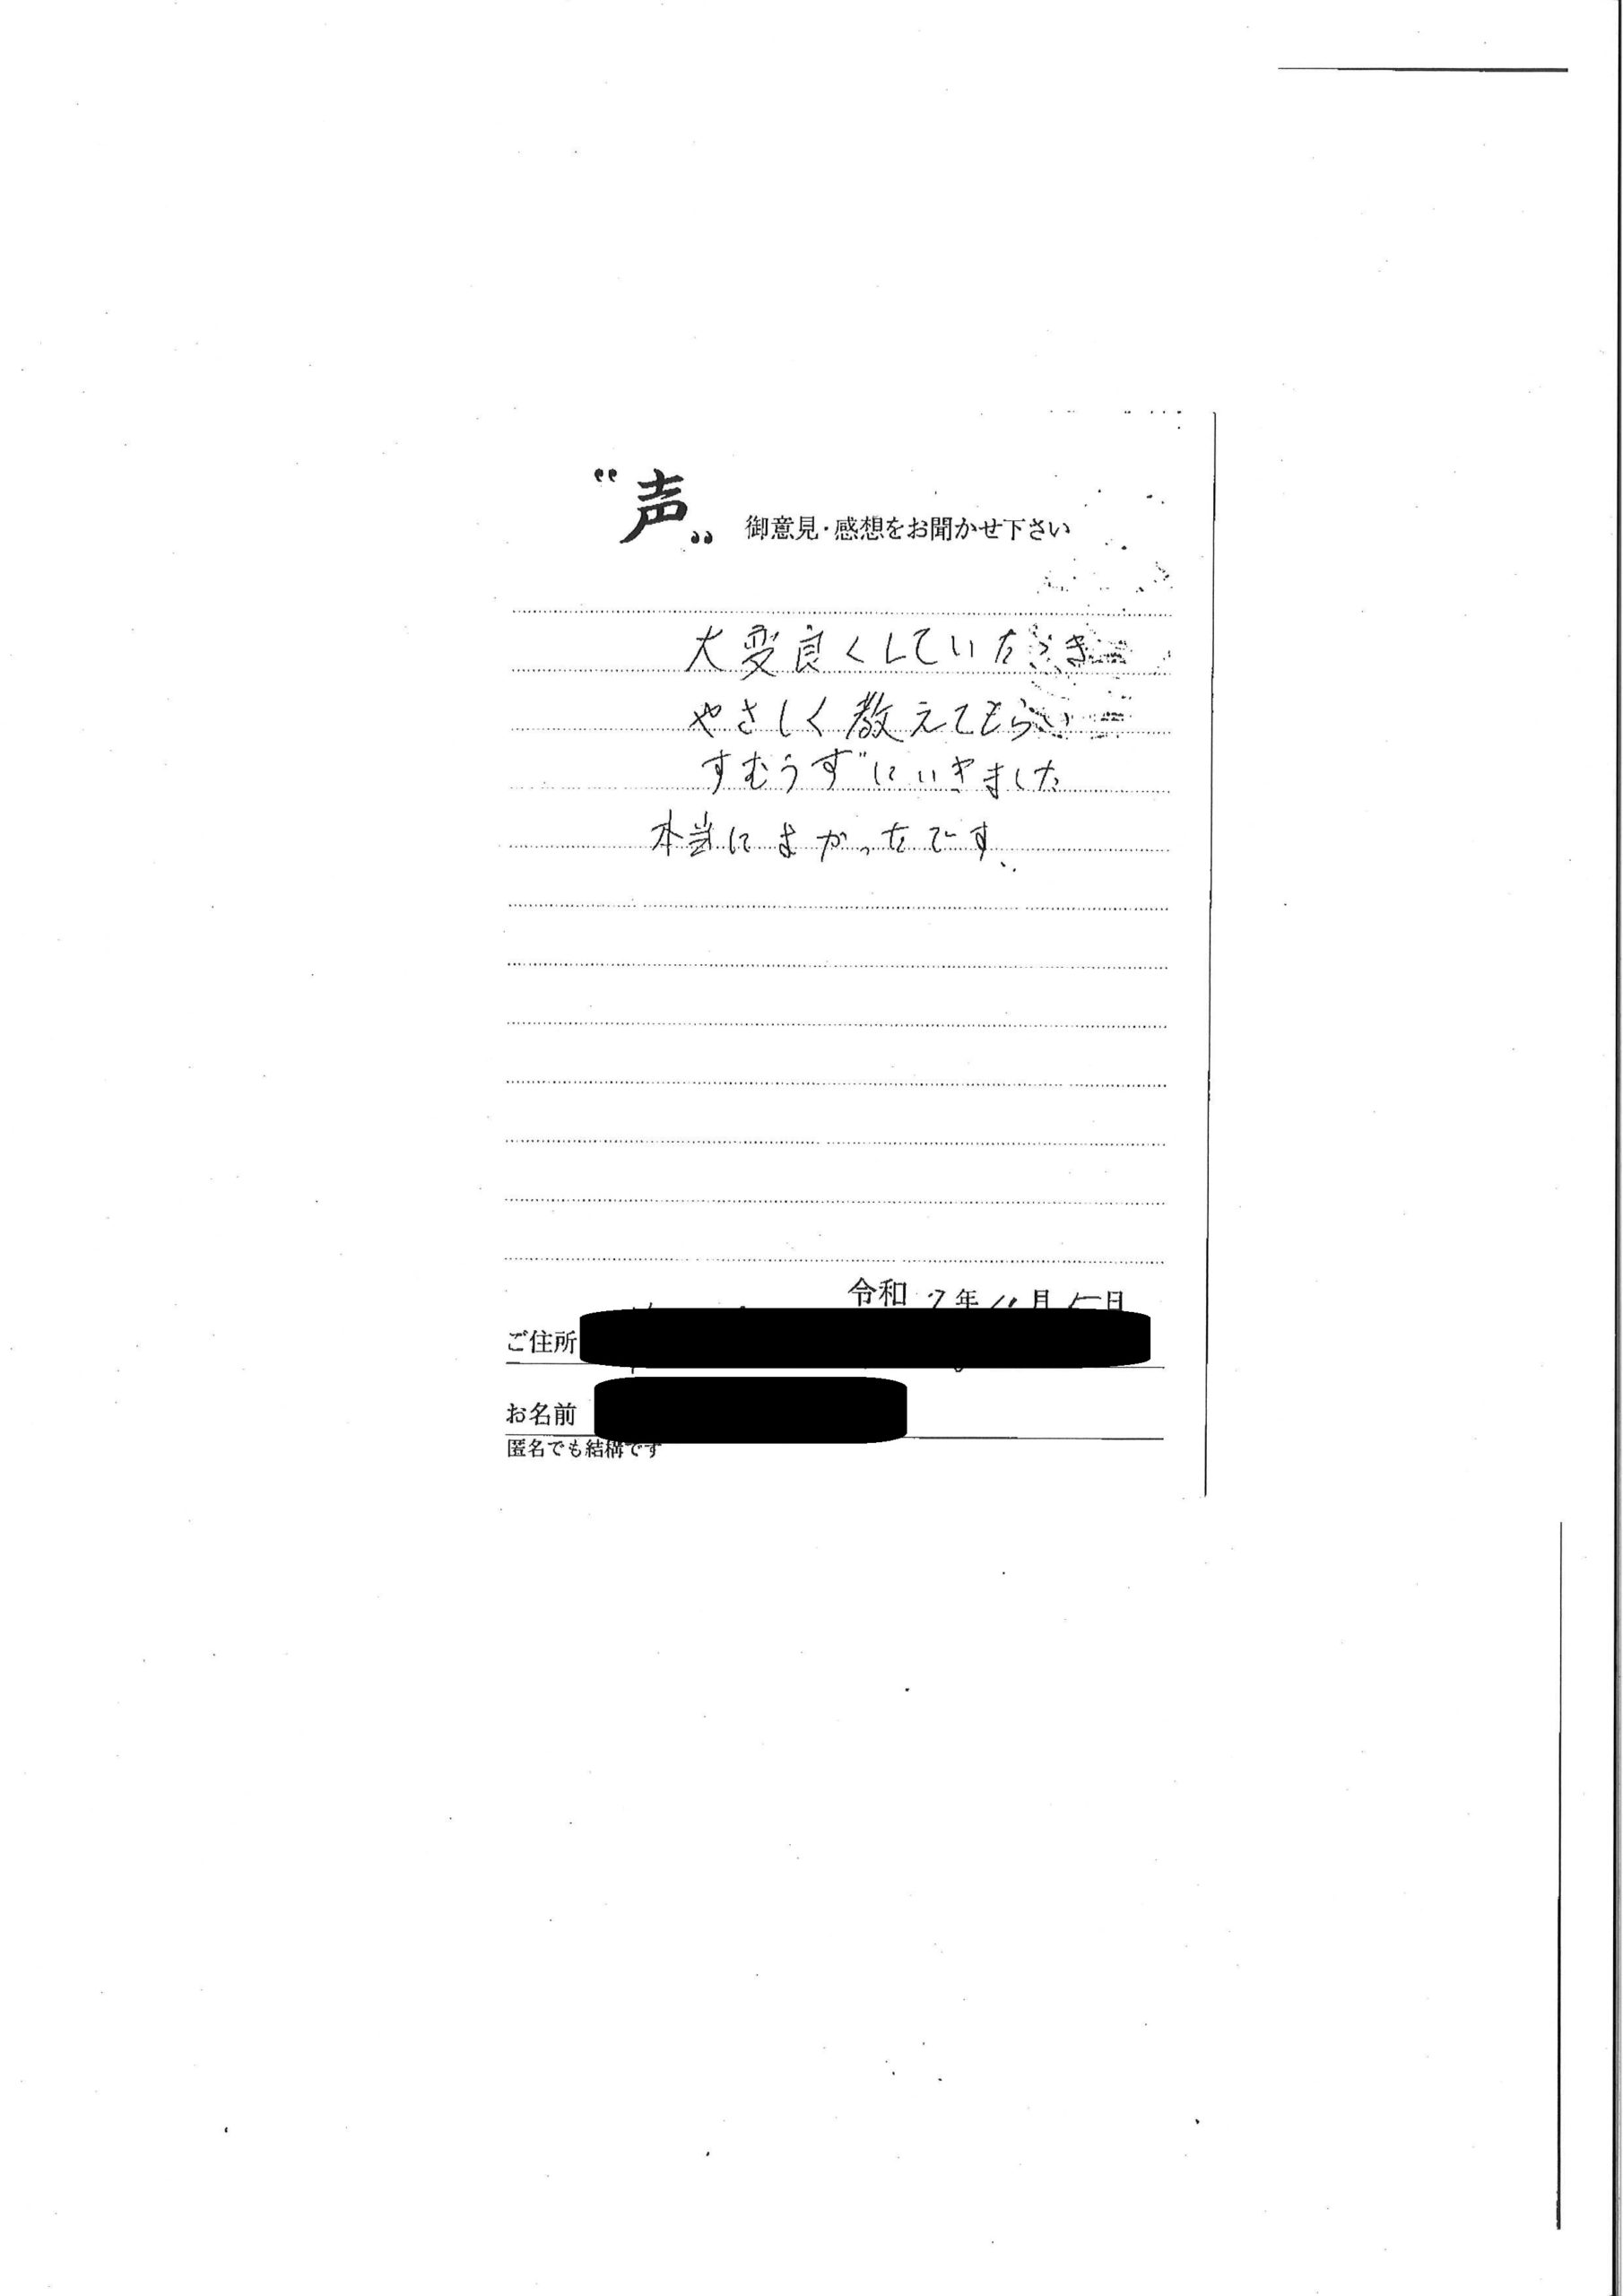 “声„ 御意見・感想をお聞かせ下さい
大変良くしていただき
やさしく教えてもらい
すむうずにいきました
本当によかったです
令和 7年 11月 5日
ご住所
お名前
匿名でも結構です